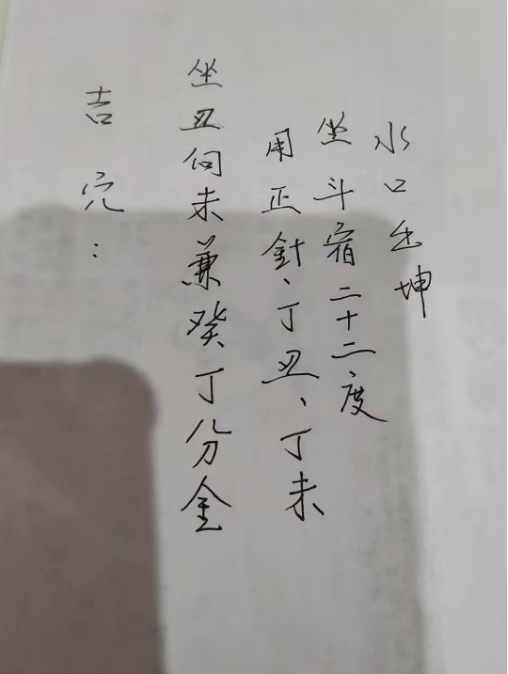 吉穴：
坐丑向未兼癸丁分金
用正針、丁丑、丁未
坐斗宿二十二度
水口出坤